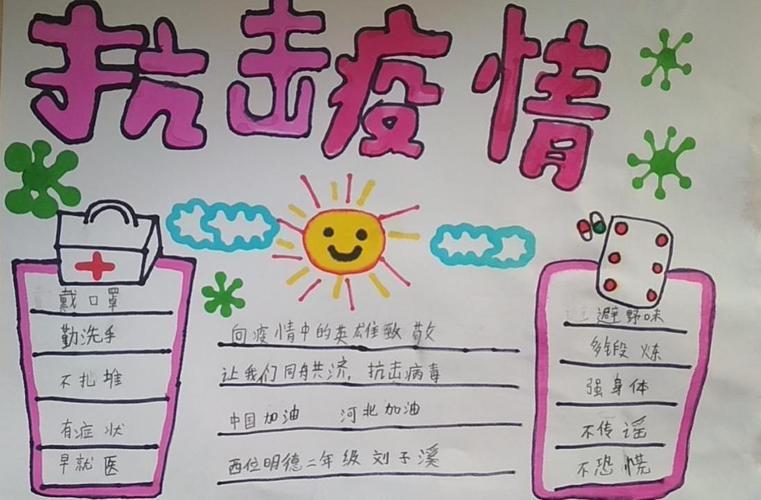 抗击疫情
戴口罩
勤洗手
不扎堆
有症状
早就医
向疫情中的英雄致敬
让我们同舟共济,抗击病毒
中国加油 河北加油
西位明德二年级 刘子溪
避野味
多锻炼
强身体
不传谣
不恐慌